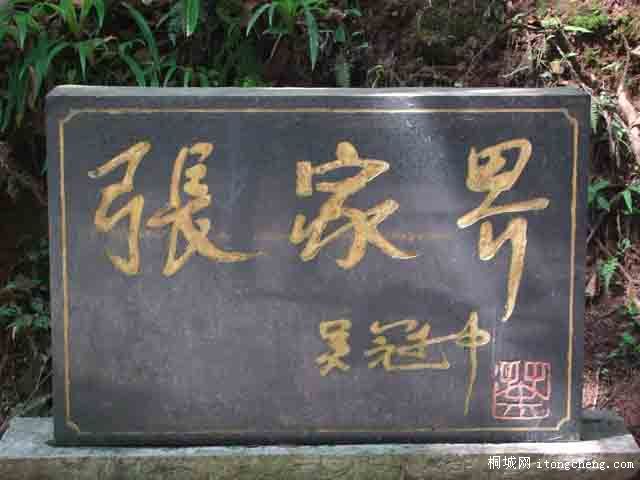 張家界
吴冠中
桐城网 itongcheng.com